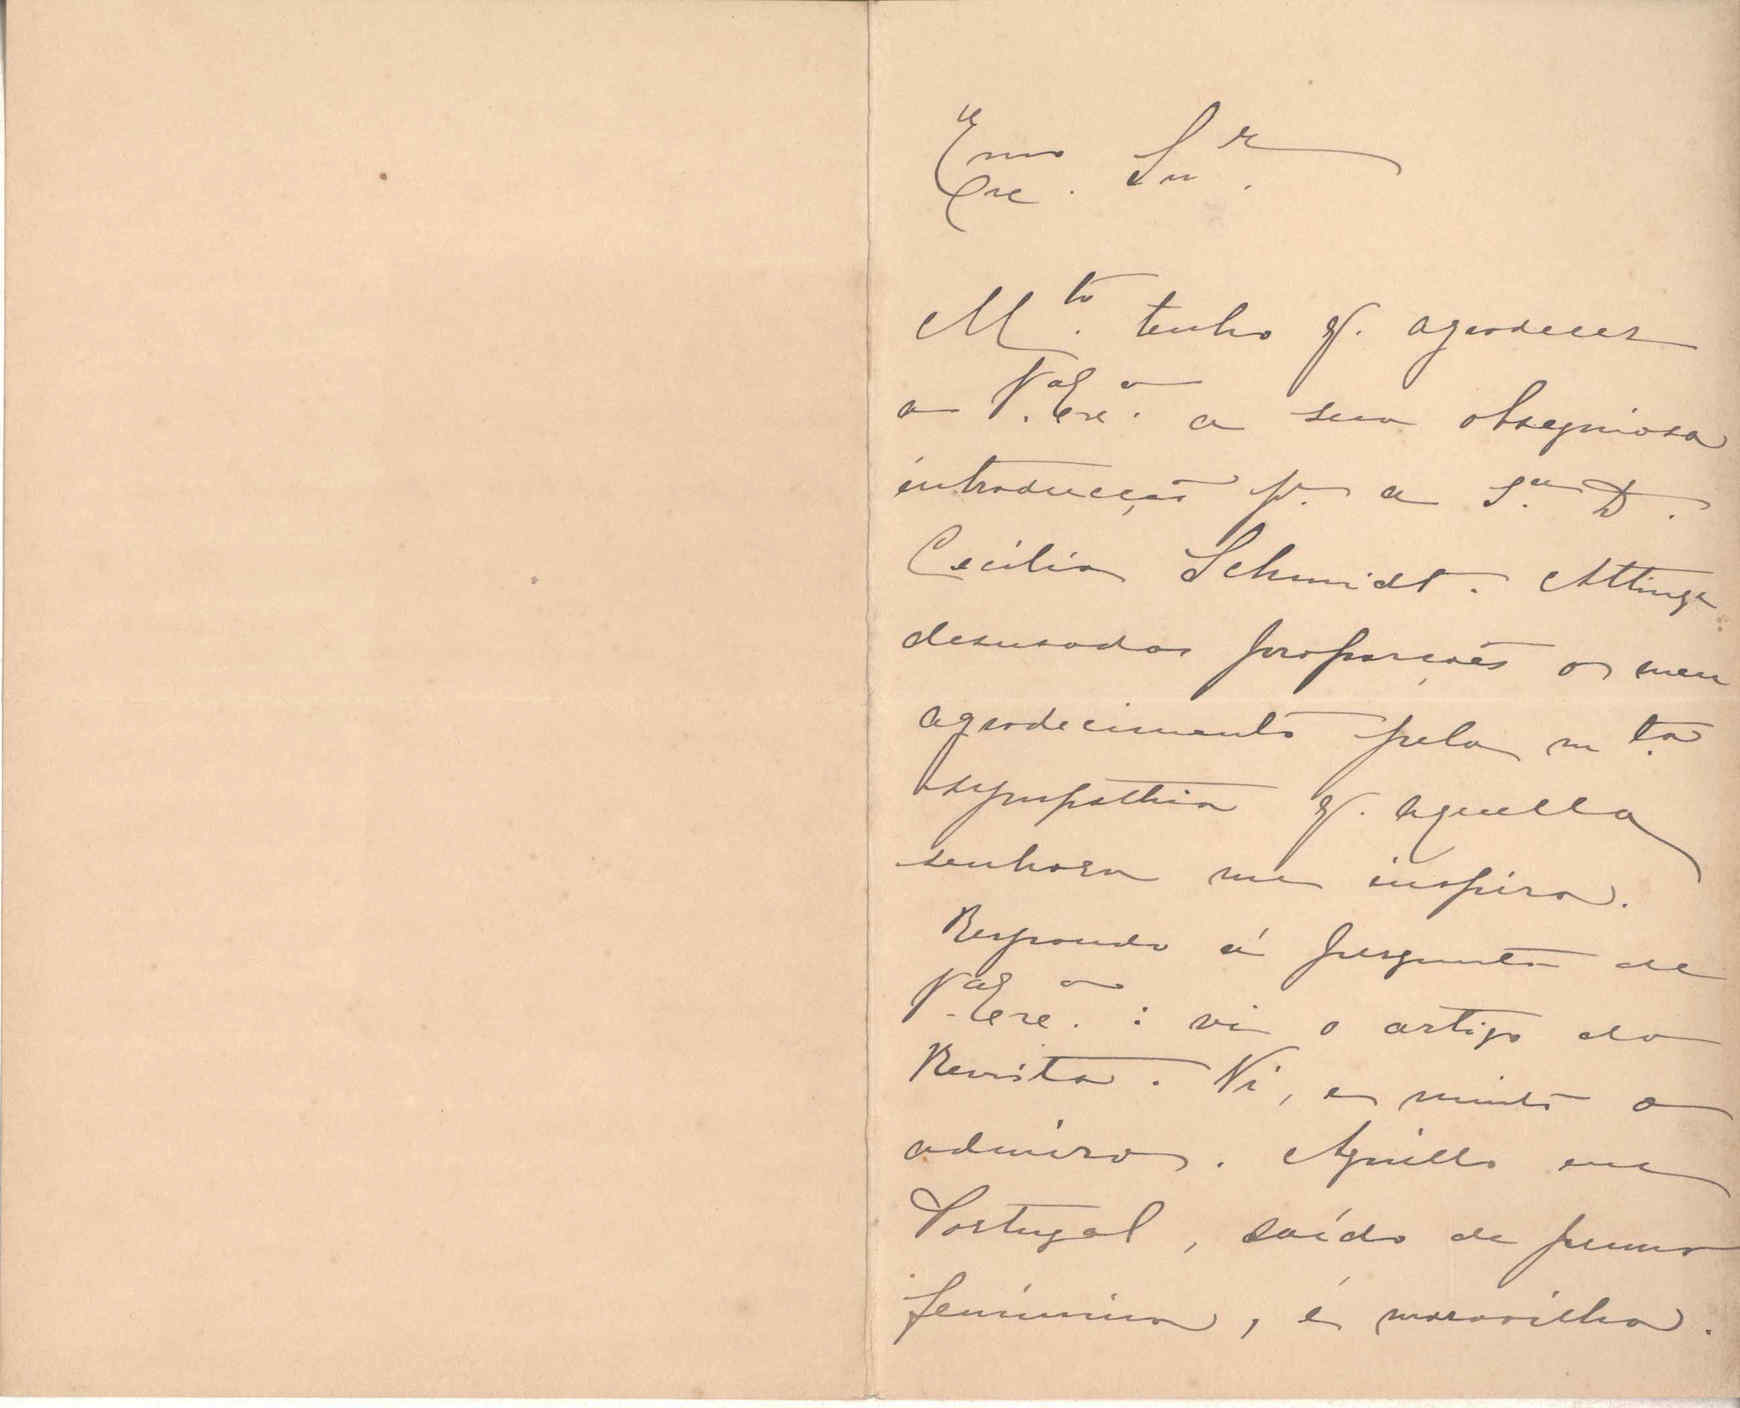 Exmo. Snr.
Mto. tenho q. agradecer
a V. Exa. a sua obsequiosa
introducção p. a Sa. D.
Cecilia Schmidt. Attinge
desusadas proporções o meu
agradecimento pela mta.
sympathia q. aquella
senhora me inspira.
Respondo á pergunta de
V. Exca.: vi o artigo da
Revista. Vi, e muito o
admiro. Aquillo em
Portugal, saído de penna
feminina, é maravilha.